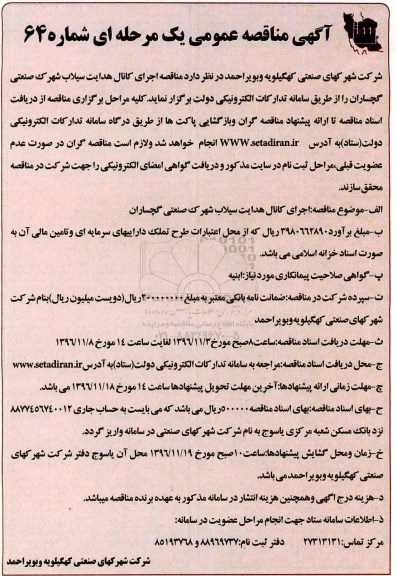 آگهی مناقصه عمومی یک مرحله ای شماره ۶۴
شرکت شهرکهای صنعتی کهگیلویه وبویراحمد در نظر دارد مناقصه اجرای کانال هدایت سیلاب شهرک صنعتی
گچساران را از طریق سامانه تدارکات الکترونیکی دولت برگزار نماید.کلیه مراحل برگزاری مناقصه از دریافت
اسناد مناقصه تا ارائه پیشنهاد مناقصه گران وبازگشایی پاکت ها از طریق درگاه سامانه تدارکات الکترونیکی
دولت(ستاد)به آدرس WWW.setadiran.ir انجام خواهد شد ولازم است مناقصه گران در صورت عدم
عضویت قبلی،مراحل ثبت نام در سایت مذکور و دریافت گواهی امضای الکترونیکی را جهت شرکت در مناقصه
محقق سازند.
الف-موضوع مناقصه:اجرای کانال هدایت سیلاب شهرک صنعتی گچساران
ب-مبلغ برآورد:۳۹۸۰۶۶۲۸۹۰ ریال که از محل اعتبارات طرح تملک داراییهای سرمایه ای وتامین مالی آن به
صورت اسناد خزانه اسلامی می باشد.
پ-گواهی صلاحیت پیمانکاری مورد نیاز:ابنیه
ت-سپرده شرکت در مناقصه:ضمانت نامه بانکی معتبر به مبلغ ۲۰۰۰۰۰۰۰۰ریال(دویست میلیون ریال)بنام شرکت
شهرکهای صنعتی کهگیلویه وبویراحمد
ث-مهلت دریافت اسناد مناقصه:ساعت۸صبح مورخ ۱۳۹۶/۱۱/۳ لغایت ساعت ۱۴ مورخ ۱۳۹۶/۱۱/۸
ج-محل دریافت اسناد مناقصه:مراجعه به سامانه تدارکات الکترونیکی دولت(ستاد)به آدرس www.setadiran.ir
چ-مهلت زمانی ارائه پیشنهادها:آخرین مهلت تحویل پیشنهادها ساعت ۱۴ مورخ ۱۳۹۶/۱۱/۱۸ می باشد.
ح-بهای اسناد مناقصه:بهای اسناد مناقصه ۵۰۰۰۰۰ریال می باشد که می بایست به حساب جاری ۸۸۷۷۴۵۶۷۴۰۰۱۲
نزد بانک مسکن شعبه مرکزی یاسوج به نام شرکت شهرکهای صنعتی در سامانه واریز گردد.
خ-زمان ومحل گشایش پیشنهادها:ساعت۱۰صبح مورخ ۱۳۹۶/۱۱/۱۹ محل آن یاسوج دفتر شرکت شهرکهای
صنعتی کهگیلویه وبویراحمد می باشد.
د-هزینه درج آگهی وهمچنین هزینه انتشار در سامانه مذکور به عهده برنده مناقصه میباشد.
ذ-اطلاعات سامانه ستاد جهت انجام مراحل عضویت در سامانه:
مرکز تماس:۲۷۳۱۳۱۳۱ دفتر ثبت نام:۸۸۹۶۹۷۳۷ و ۸۵۱۹۳۷۶۸
شرکت شهرکهای صنعتی کهگیلویه وبویراحمد